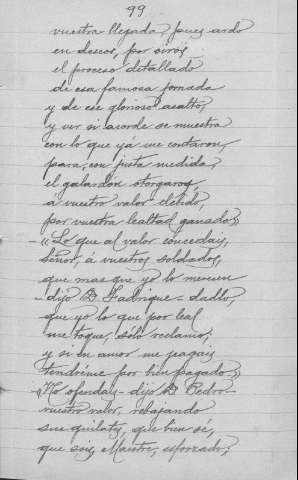 99
vuestra llegada, pues ardo
en deseos, por oiros,
el proceso detallado
de esa famosa jornada
y de ese glorioso asalto,
y ver si acorde se muestra
con lo que yá me contaron,
para, con justa medida,
el galardón otorgaros,
á vuestro valor debido,
por vuestra lealtad ganado»
«Lo que al valor concedais,
señor, á vuestros soldados,
que mas que yo lo merecen
–dijo D. Fadrique– dadlo,
que yo lo que por leal
me toque, sólo reclamo;
y si en amor me pagais
tendréme por bien pagado.»
«No ofendais –dijo D. Pedro–
vuestro valor, rebajando
sus quilates, que bien sé,
que sois, Maestre, esforzado;